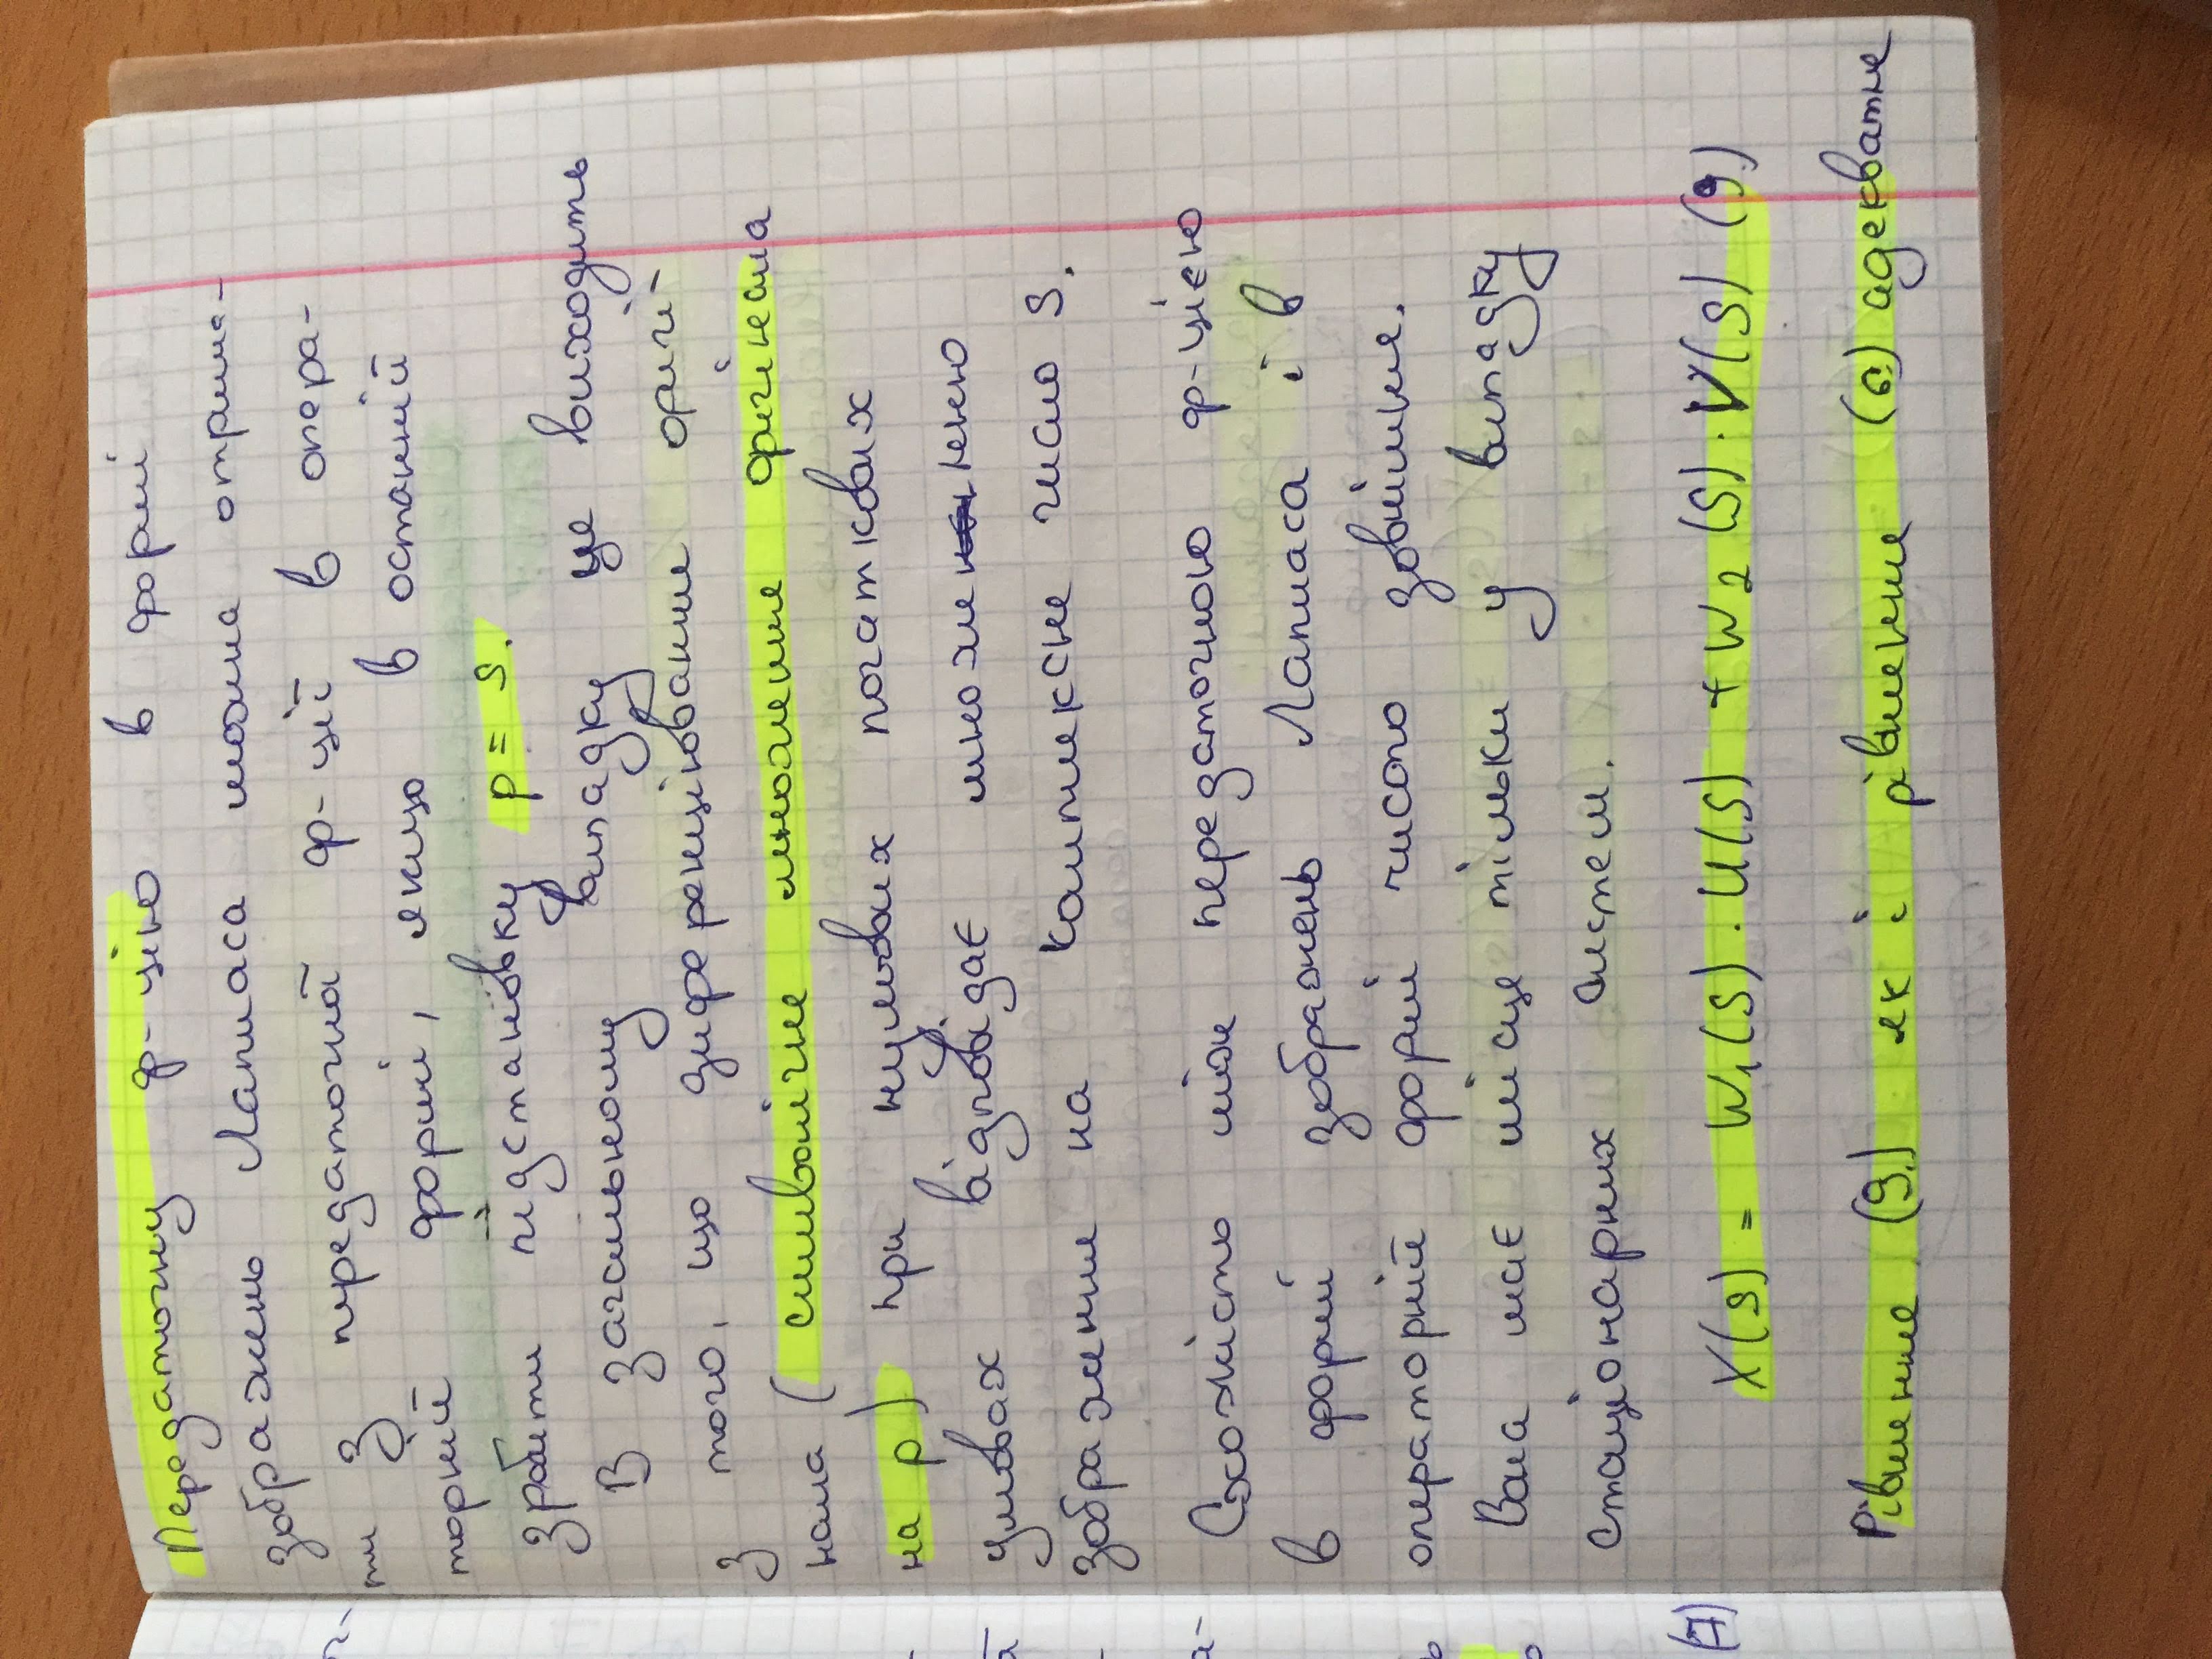 Передаточну ф-цію в формі
зображень Лапласа можна отрима-
ти з передаточної ф-ції в опера-
торній формі, якщо в останній
зробити підстановку p = s.
В загальному випадку це виходить
з того, що диференціювання оригі-
нала (символічне множення оригінала
на p) при нульових початкових
умовах відповідає множенню
зображення на комплексне число s.
Схожість між передаточною ф-цією
в формі зображень Лапласа і в
операторній формі чисто зовнішня.
Вона має місце тільки у випадку
стаціонарних систем.
(7)
X(s) = W1(S) · U(S) + W2 (S) · V(S) (9.)
Рівняння (9.) як і рівняння (6.) адекватне